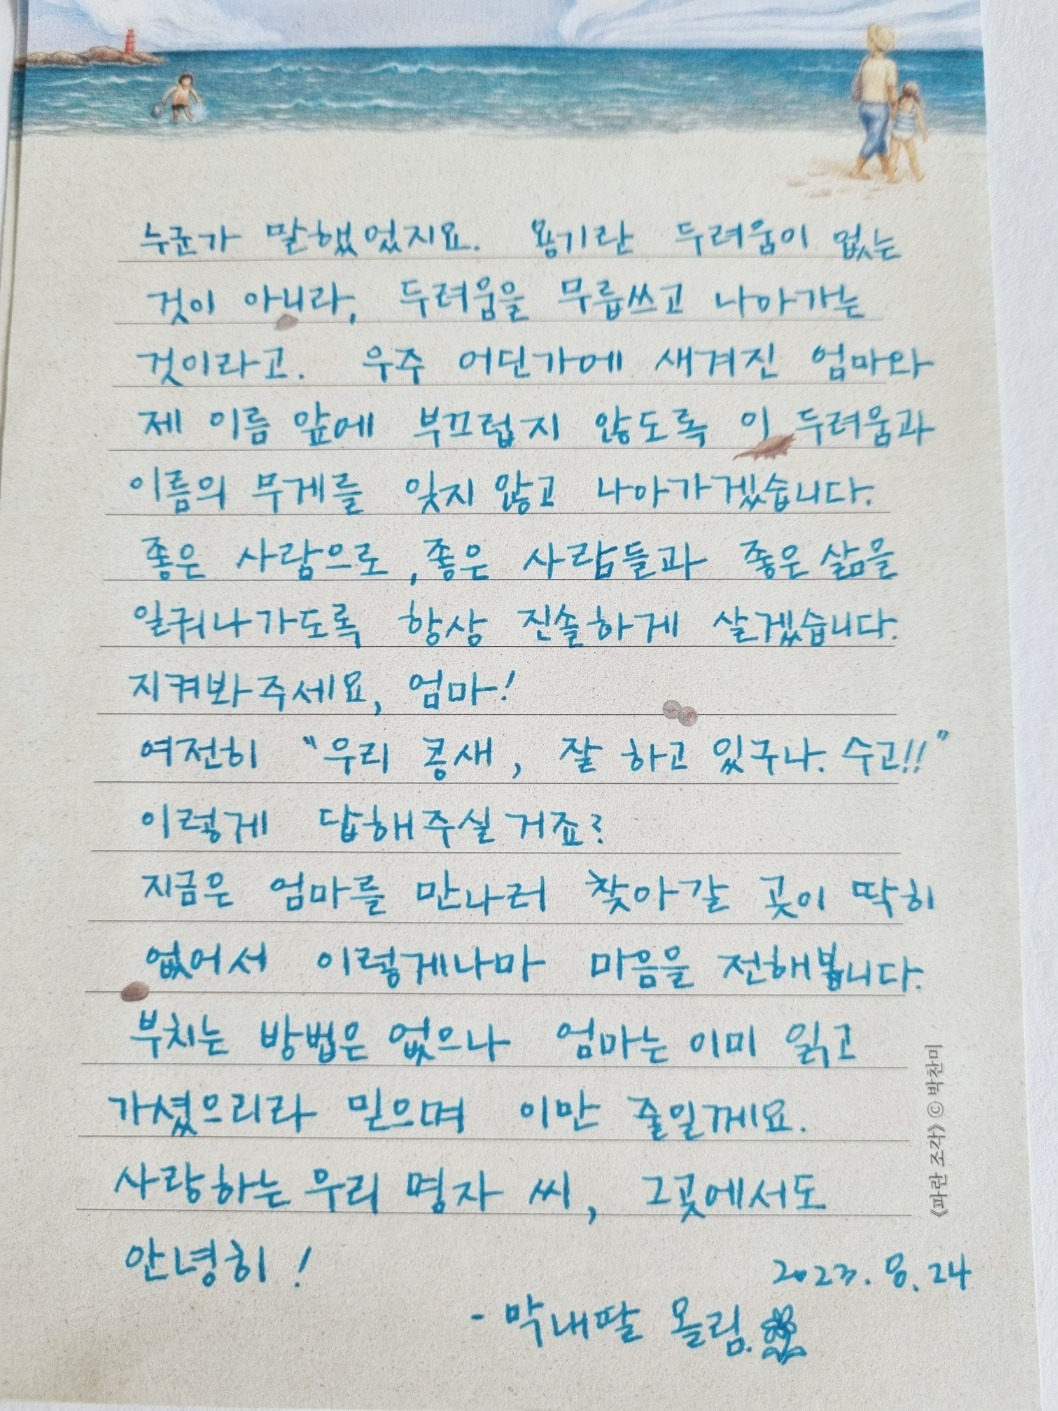 누군가 말했었지요. 용기란 두려움이 없는
것이 아니라, 두려움을 무릅쓰고 나아가는
것이라고. 우주 어딘가에 새겨진 엄마와
제 이름 앞에 부끄럽지 않도록 이 두려움과
이름의 무게를 잊지 않고 나아가겠습니다.
좋은 사람으로, 좋은 사람들과 좋은 삶을
일궈나가도록 항상 진솔하게 살겠습니다.
지켜봐주세요, 엄마!
여전히 "우리 콩새, 잘 하고 있구나. 수고!!"
이렇게 답해주실 거죠?
지금은 엄마를 만나러 찾아갈 곳이 딱히
없어서 이렇게나마 마음을 전해봅니다.
부치는 방법은 없으나 엄마는 이미 읽고
가셨으리라 믿으며 이만 줄일께요.
사랑하는 우리 명자 씨, 그곳에서도
안녕히!
2023. 8. 24
- 막내딸 올림.
《파란 조각》 ⓒ 박찬미